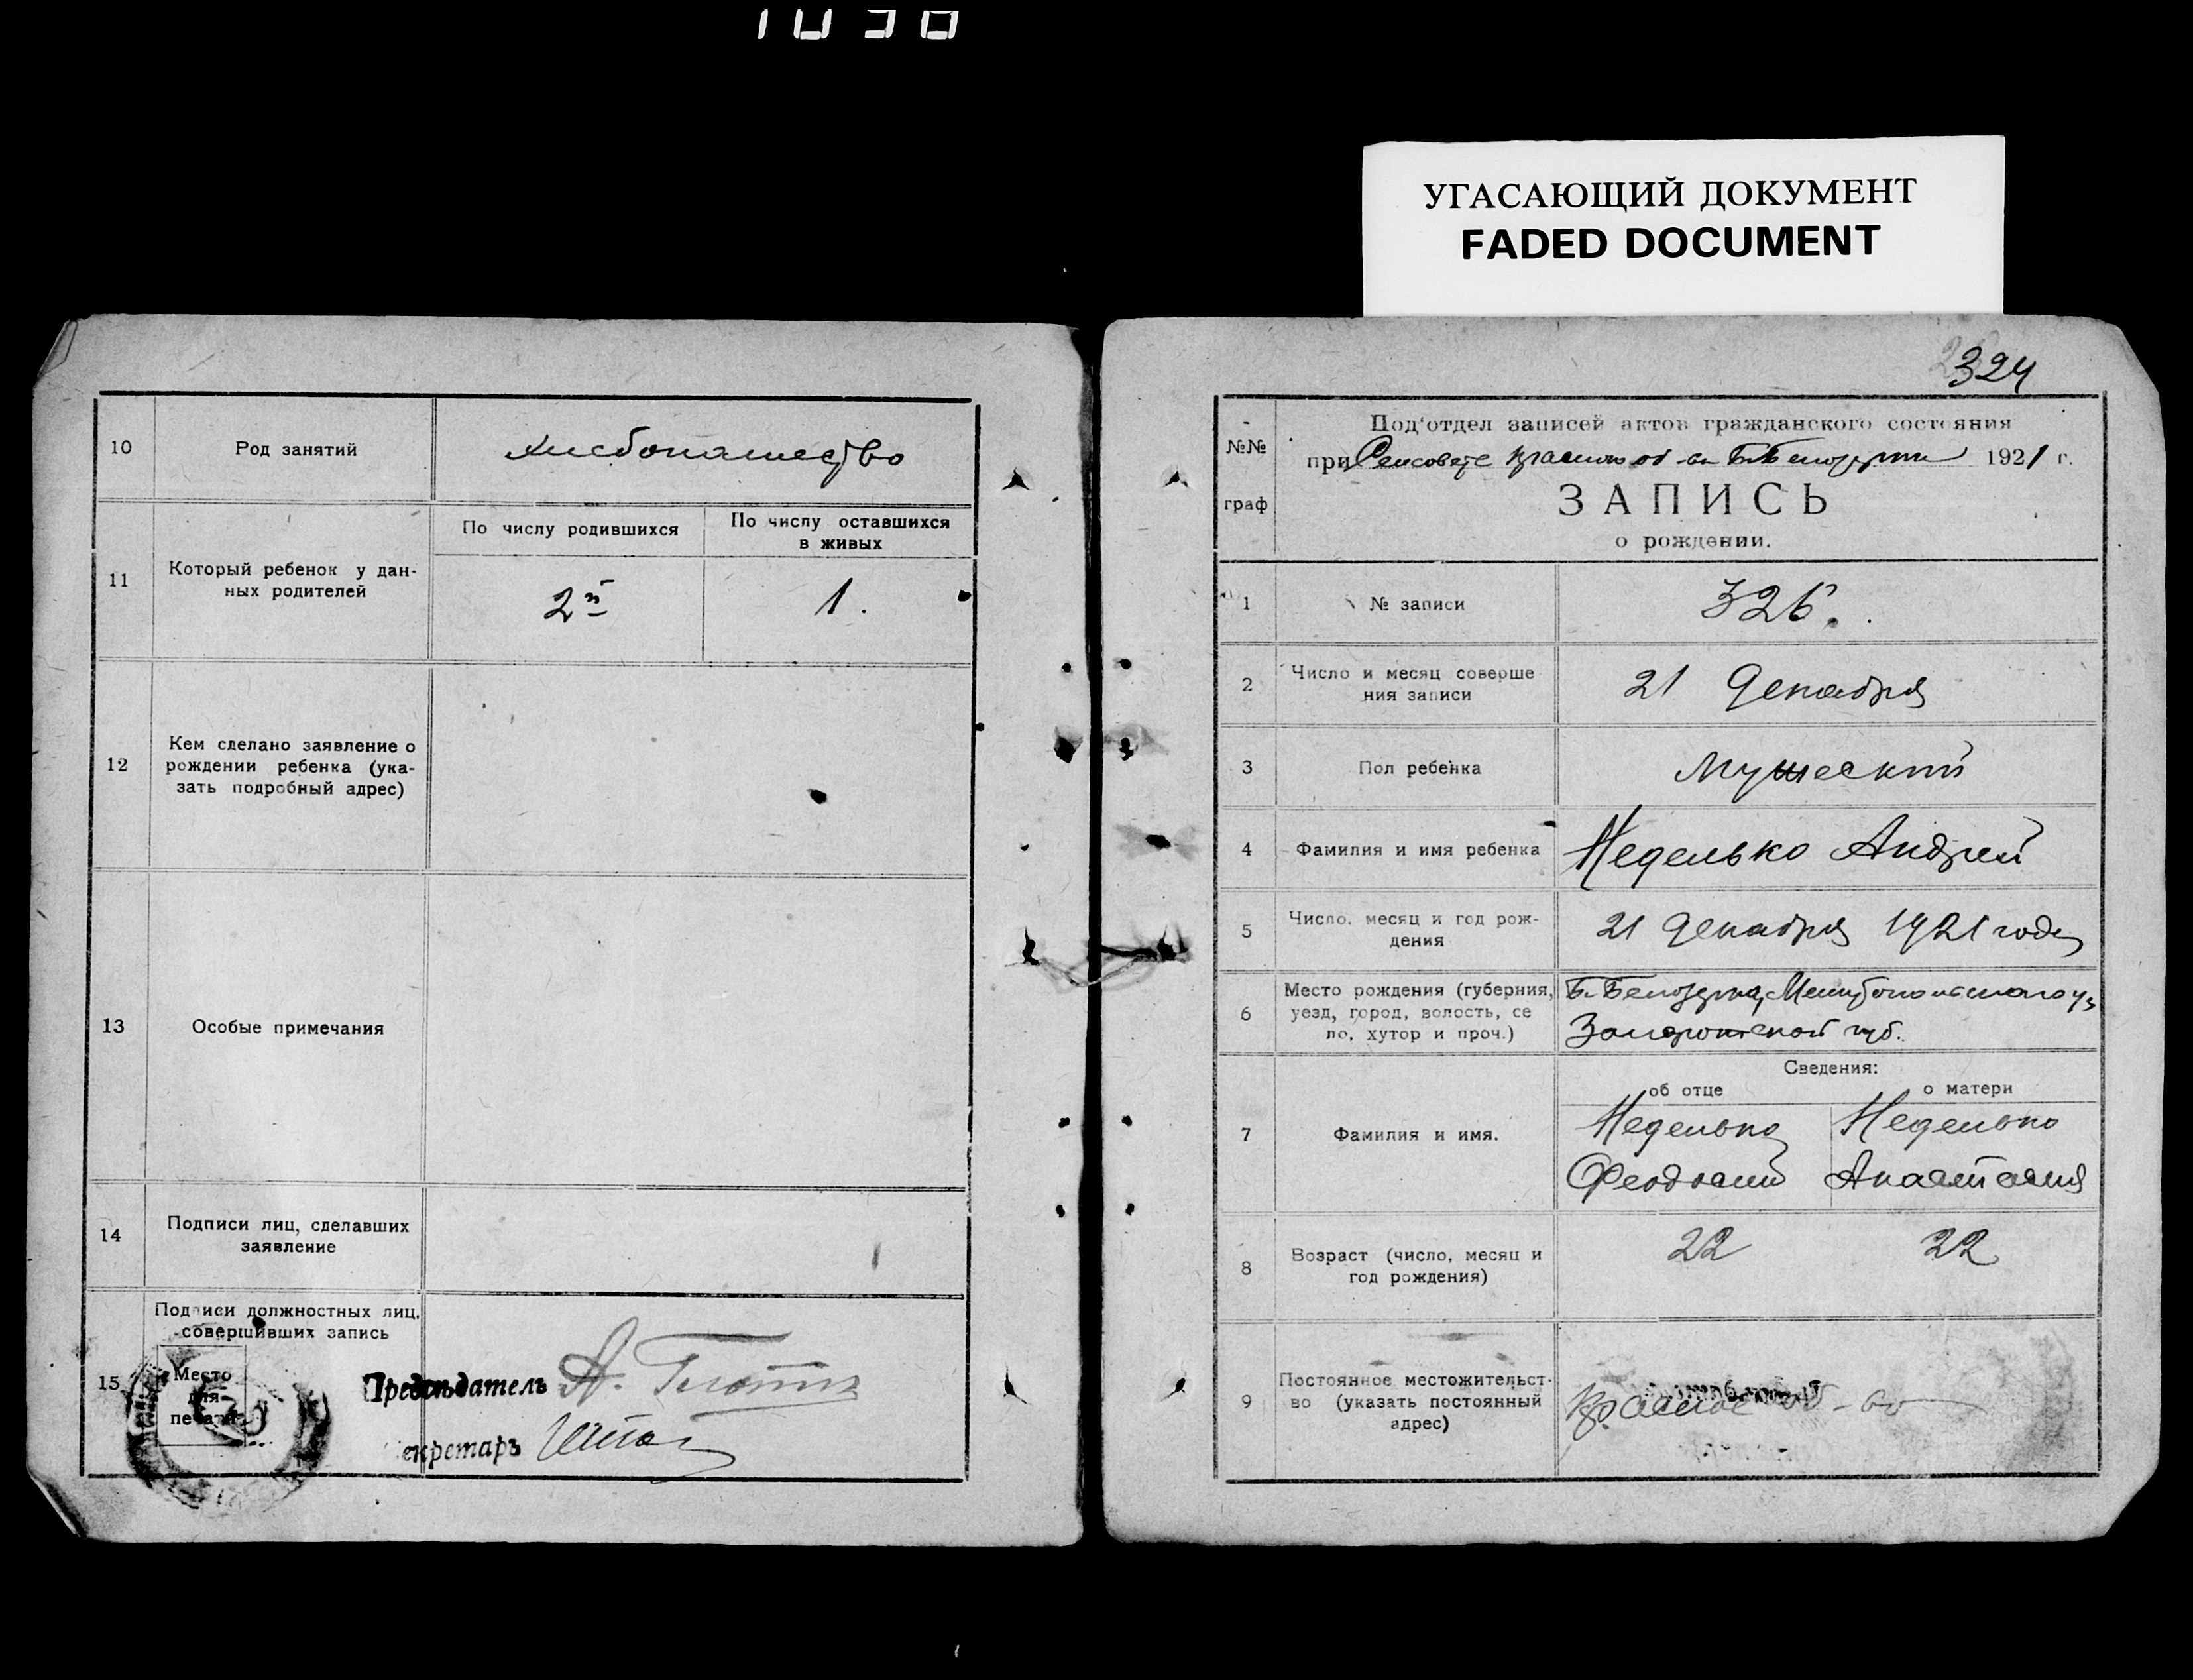 УГАСАЮЩИЙ ДОКУМЕНТ
FADED DOCUMENT
10
Род занятий
хлебопашество
11
Который ребенок у дан-
ных родителей
По числу родившихся
По числу оставшихся
в живых
2й
1.
12
Кем сделано заявление о
рождении ребенка (ука-
зать подробный адрес)
13
Особые примечания
14
Подписи лиц, сделавших
заявление
15
Подписи должностных лиц,
совершивших запись
Место
для
печати
Председатель А.
екретарь
324
№№
граф
Под'отдел записей актов гражданского состояния
при Сельсовете Красного об-ва Б. Белозерки 1921 г.
ЗАПИСЬ
о рождении.
1
№ записи
326.
2
Число и месяц соверше
ния записи
21 Декабря
3
Пол ребенка
Мужеский
4
Фамилия и имя ребенка
Неделько Андрей
5
Число, месяц и год рож-
дения
21 декабря 1921 года
6
Место рождения (губерния,
уезд, город, волость, се
ло, хутор и проч.)
Б. Белозерка, Мелитопольского уз
Запорожской губ.
Сведения:
об отце
о матери
7
Фамилия и имя.
Неделько
Феодосий
Неделько
Анастасия
8
Возраст (число, месяц и
год рождения)
22
22
9
Постоянное местожительст-
во (указать постоянный
адрес)
Красное об-во